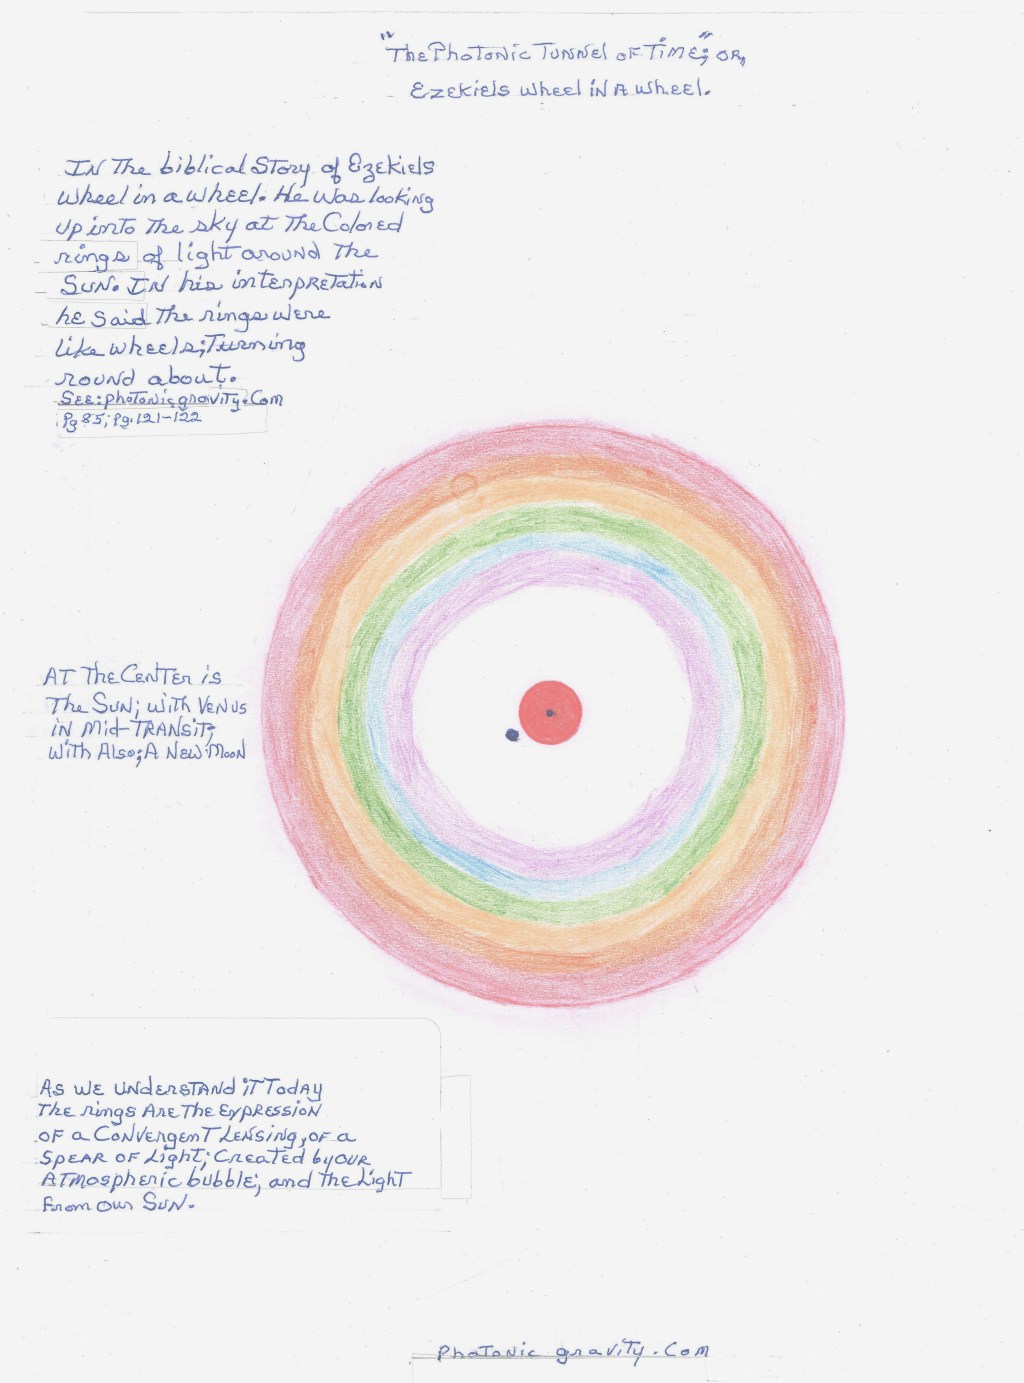 "The Photonic Tunnel of Time"; or,
Ezekiels wheel in a wheel.
In the biblical Story of Ezekiels
wheel in a wheel. He was looking
up into the sky at the Colored
rings of light around the
Sun. In his interpretation
he said the rings were
like wheels; Turning
round about.
See: photonicgravity.com
Pg 85; Pg. 121-122
At the Center is
The Sun; with Venus
in Mid-Transit;
with Also; A New Moon
As we understand it Today
The rings Are The Expression
of a Convergent Lensing, of a
Spear of Light; Created by our
Atmospheric bubble; and the Light
From our Sun.
Photonic gravity.Com